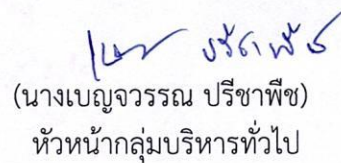 (นางเบญจวรรณ ปรีชาพืช)
หัวหน้ากลุ่มบริหารทั่วไป